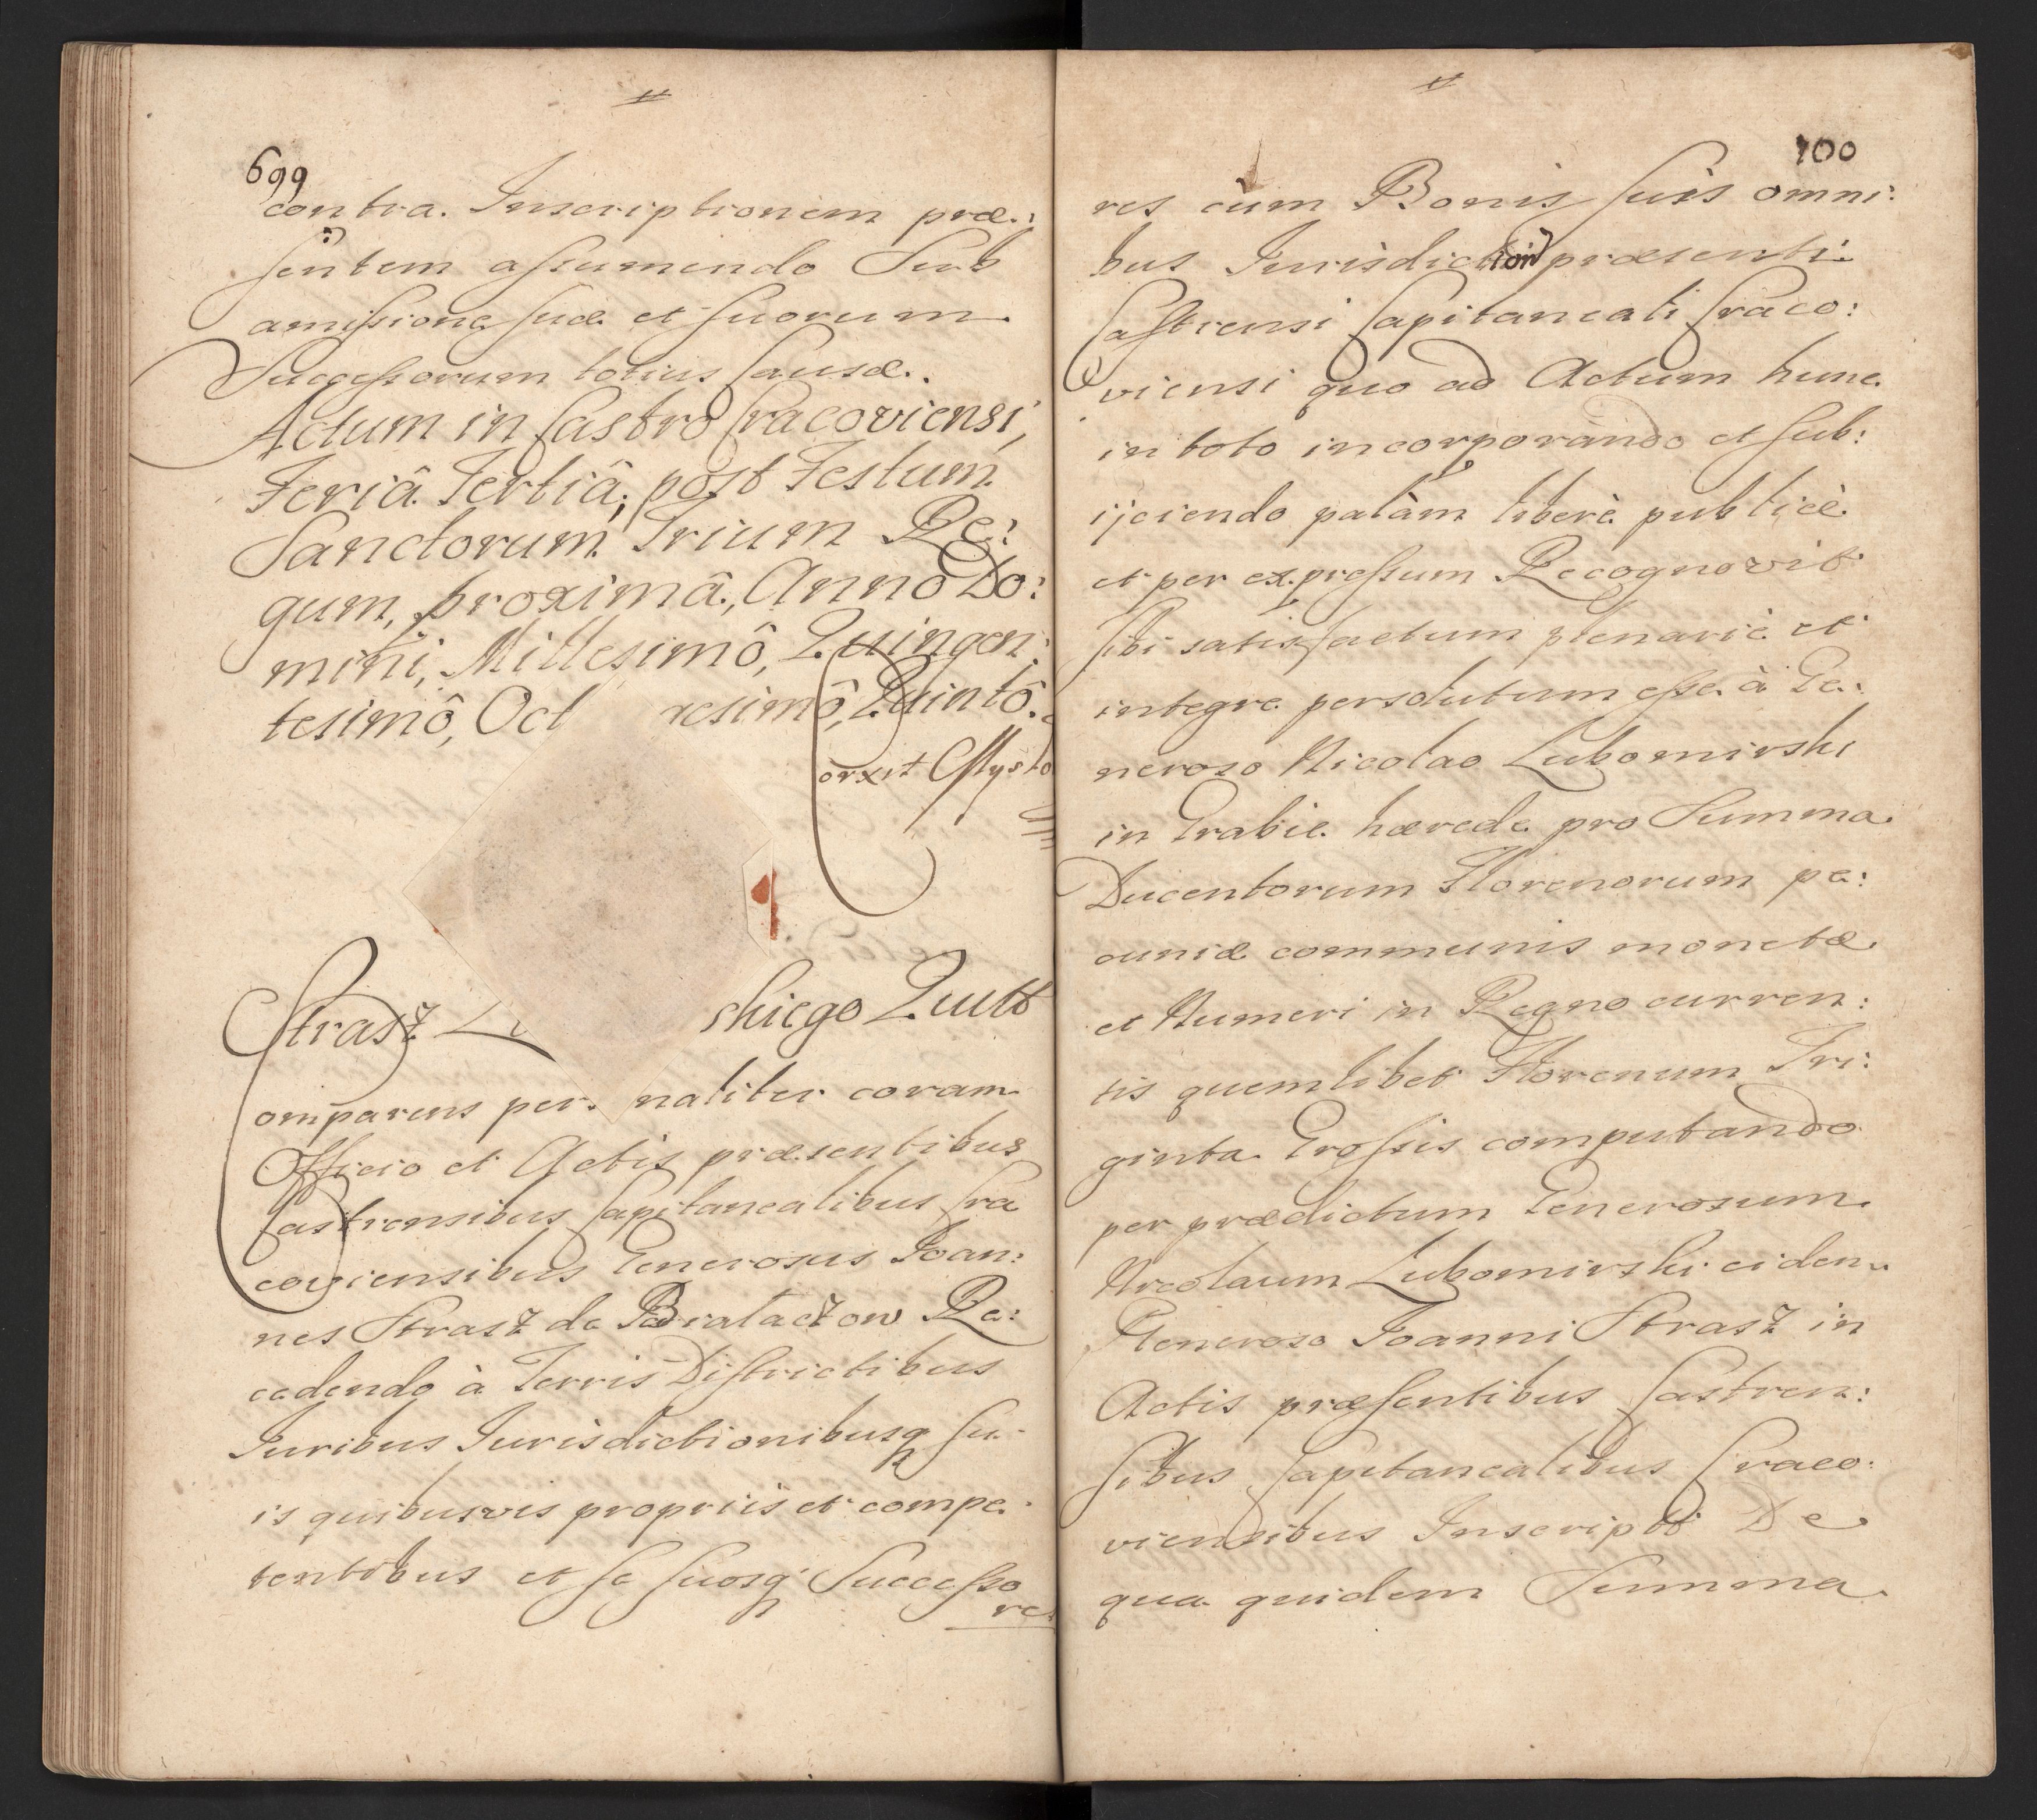 699
contra. Inscriptionem præ:
sentem assumendo Sub
amissione suæ et suorum
Successorum totius Causæ.
Actum in Castro Cracoviensi,
Feriâ Tertiâ, post Festum
Sanctorum Trium Re:
gum, proximâ, Annô Do:
mini, Millesimô, Quingen:
tesimô, Oct esimô, Quintô.
Strasz L skiego Quitt
omparens per naliter coram
Officio et Actis præsentibus
Castrensibus Capitanealibus Cra
coviensibus Generosus Joan:
nes Strasz de Bialaczow Re:
cedendo à Terris Districtibus
Juribus Jurisdictionibusq su
is quibusvis propriis et compe
tentibus et se suosq Successo
res
700
res cùm Bonis suis omni:
bus Jurisdictioni præsenti
Castrensi Capitaneali Craco:
viensi quo ad Actum hunc
in toto incorporàndo et sub:
ijciendo palàm liberè publicè
et per expressum Recognovit
sibi satisfactum plenariè et
integre persolutum esse à Ge:
neroso Nicolao Lubomirski
in Grabie hærede pro Summa
Ducentorum Florenorum pe:
cuniæ communis monetæ
et Numeri in Regno curren:
tis quemlibet Florenum Tri:
ginta Grossis computando
per prædictum Generosum
Nicolaum Lubomirski eidem
Generoso Joanni Strasz in
Actis præsentibus Castren:
sibus Capitanealibus Craco:
viensibus Inscripta De
qua quidem Summa